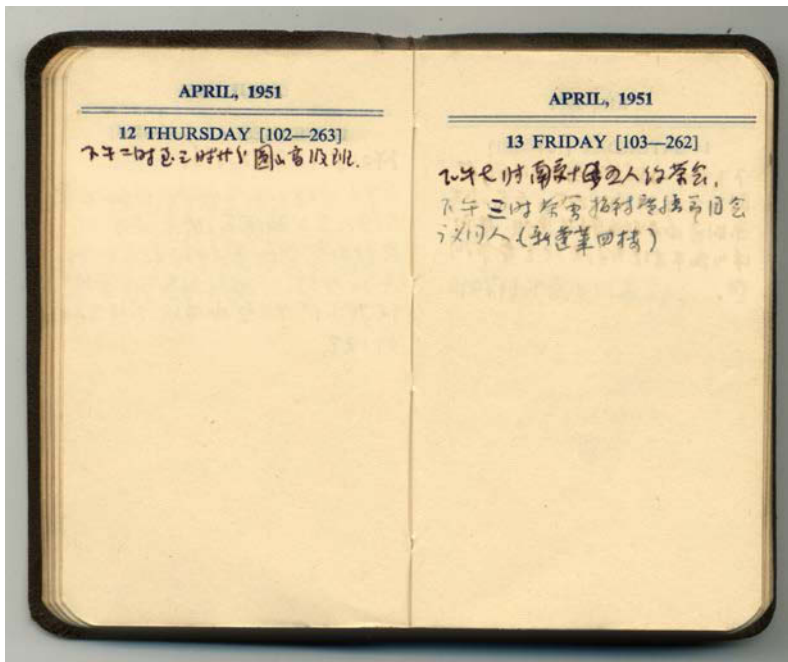 APRIL, 1951
12 THURSDAY [102—263]
下午二时至三时廿分圆山高级班.
APRIL, 1951
13 FRIDAY [103—262]
下午七时南 十 五人约茶会.
下午三时茶会招待 会
议同人(新 第四楼)